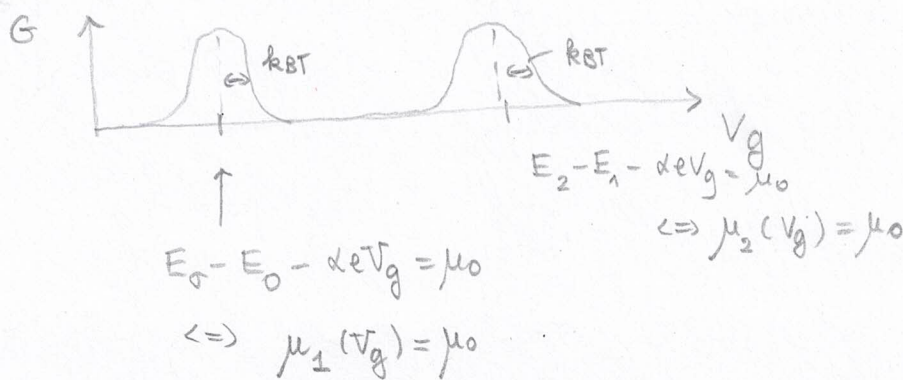 G
kBT
kBT
Vg
E₂ - E₁ - αeVg = μ₀
<=> μ₂(Vg) = μ₀
Eσ - E₀ - αeVg = μ₀
<=> μ₁(Vg) = μ₀